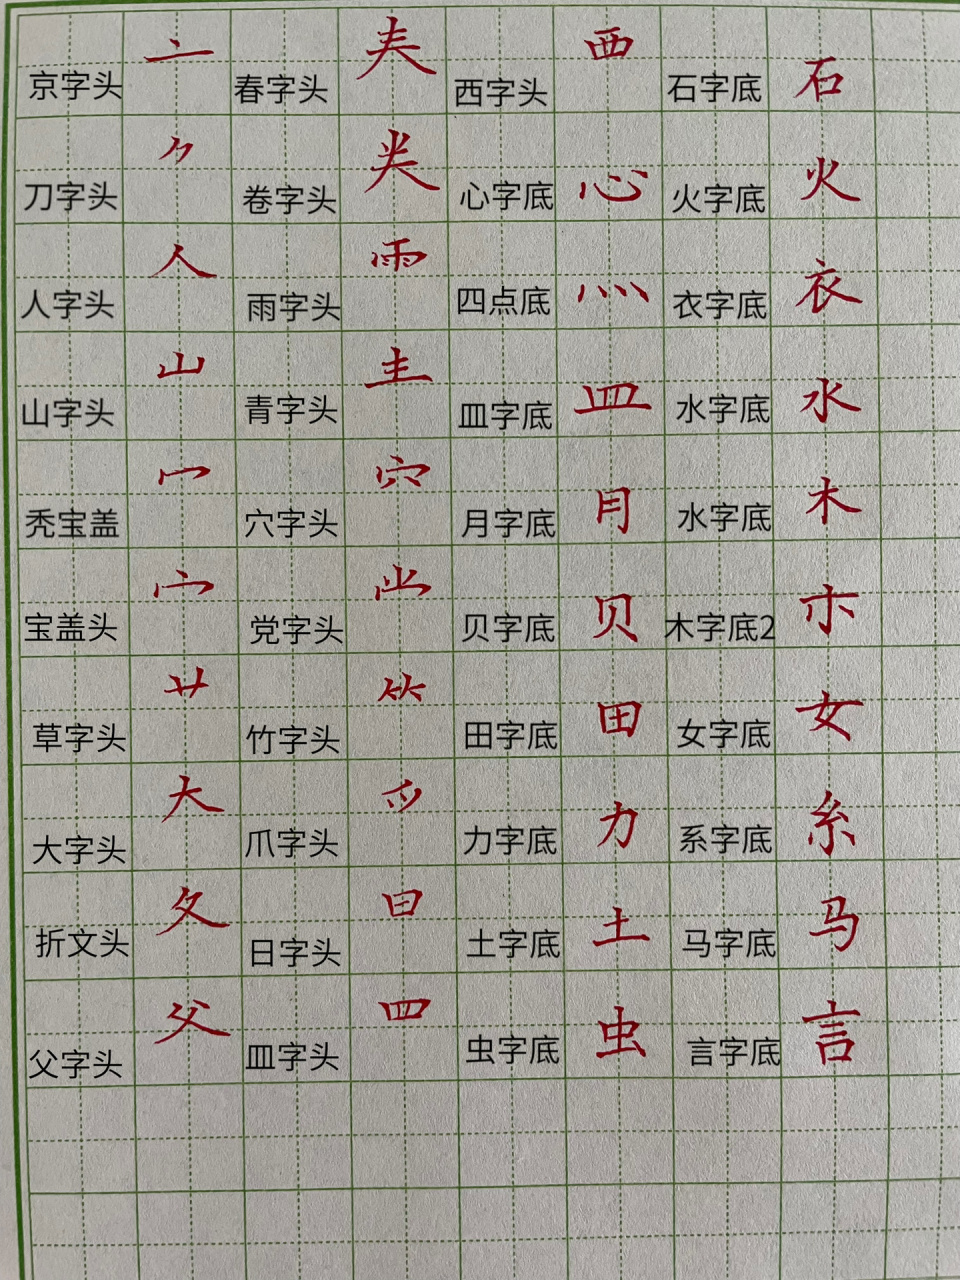 京字头 亠 春字头 𡗗 西字头 覀 石字底 石
刀字头 ⺈ 卷字头 龹 心字底 心 火字底 火
人字头 人 雨字头 雨 四点底 灬 衣字底 衣
山字头 山 青字头 龶 皿字底 皿 水字底 水
秃宝盖 冖 穴字头 穴 月字底 月 水字底 木
宝盖头 宀 党字头 ⺌冖 贝字底 贝 木字底2 朩
草字头 艹 竹字头 ⺮ 田字底 田 女字底 女
大字头 大 爪字头 爫 力字底 力 系字底 糸
折文头 夂 日字头 日 土字底 土 马字底 马
父字头 父 皿字头 罒 虫字底 虫 言字底 言